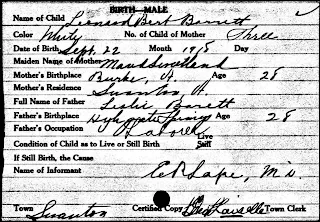 BIRTH—MALE
Name of Child Leonard Bert Barrett
Color White No. of Child of Mother Three
Date of Birth Sept. 22 Month 1918 Day
Maiden Name of Mother Maud
Mother's Birthplace Burke, Vt. Age 28
Mother's Residence Swanton, Vt.
Full Name of Father Leslie Barrett
Father's Birthplace Age 28
Father's Occupation Laborer
Condition of Child as to Live or Still Birth Live Still
If Still Birth, the Cause
Name of Informant E. R. Lape, M.D.
Town Swanton Certified Copy Town Clerk